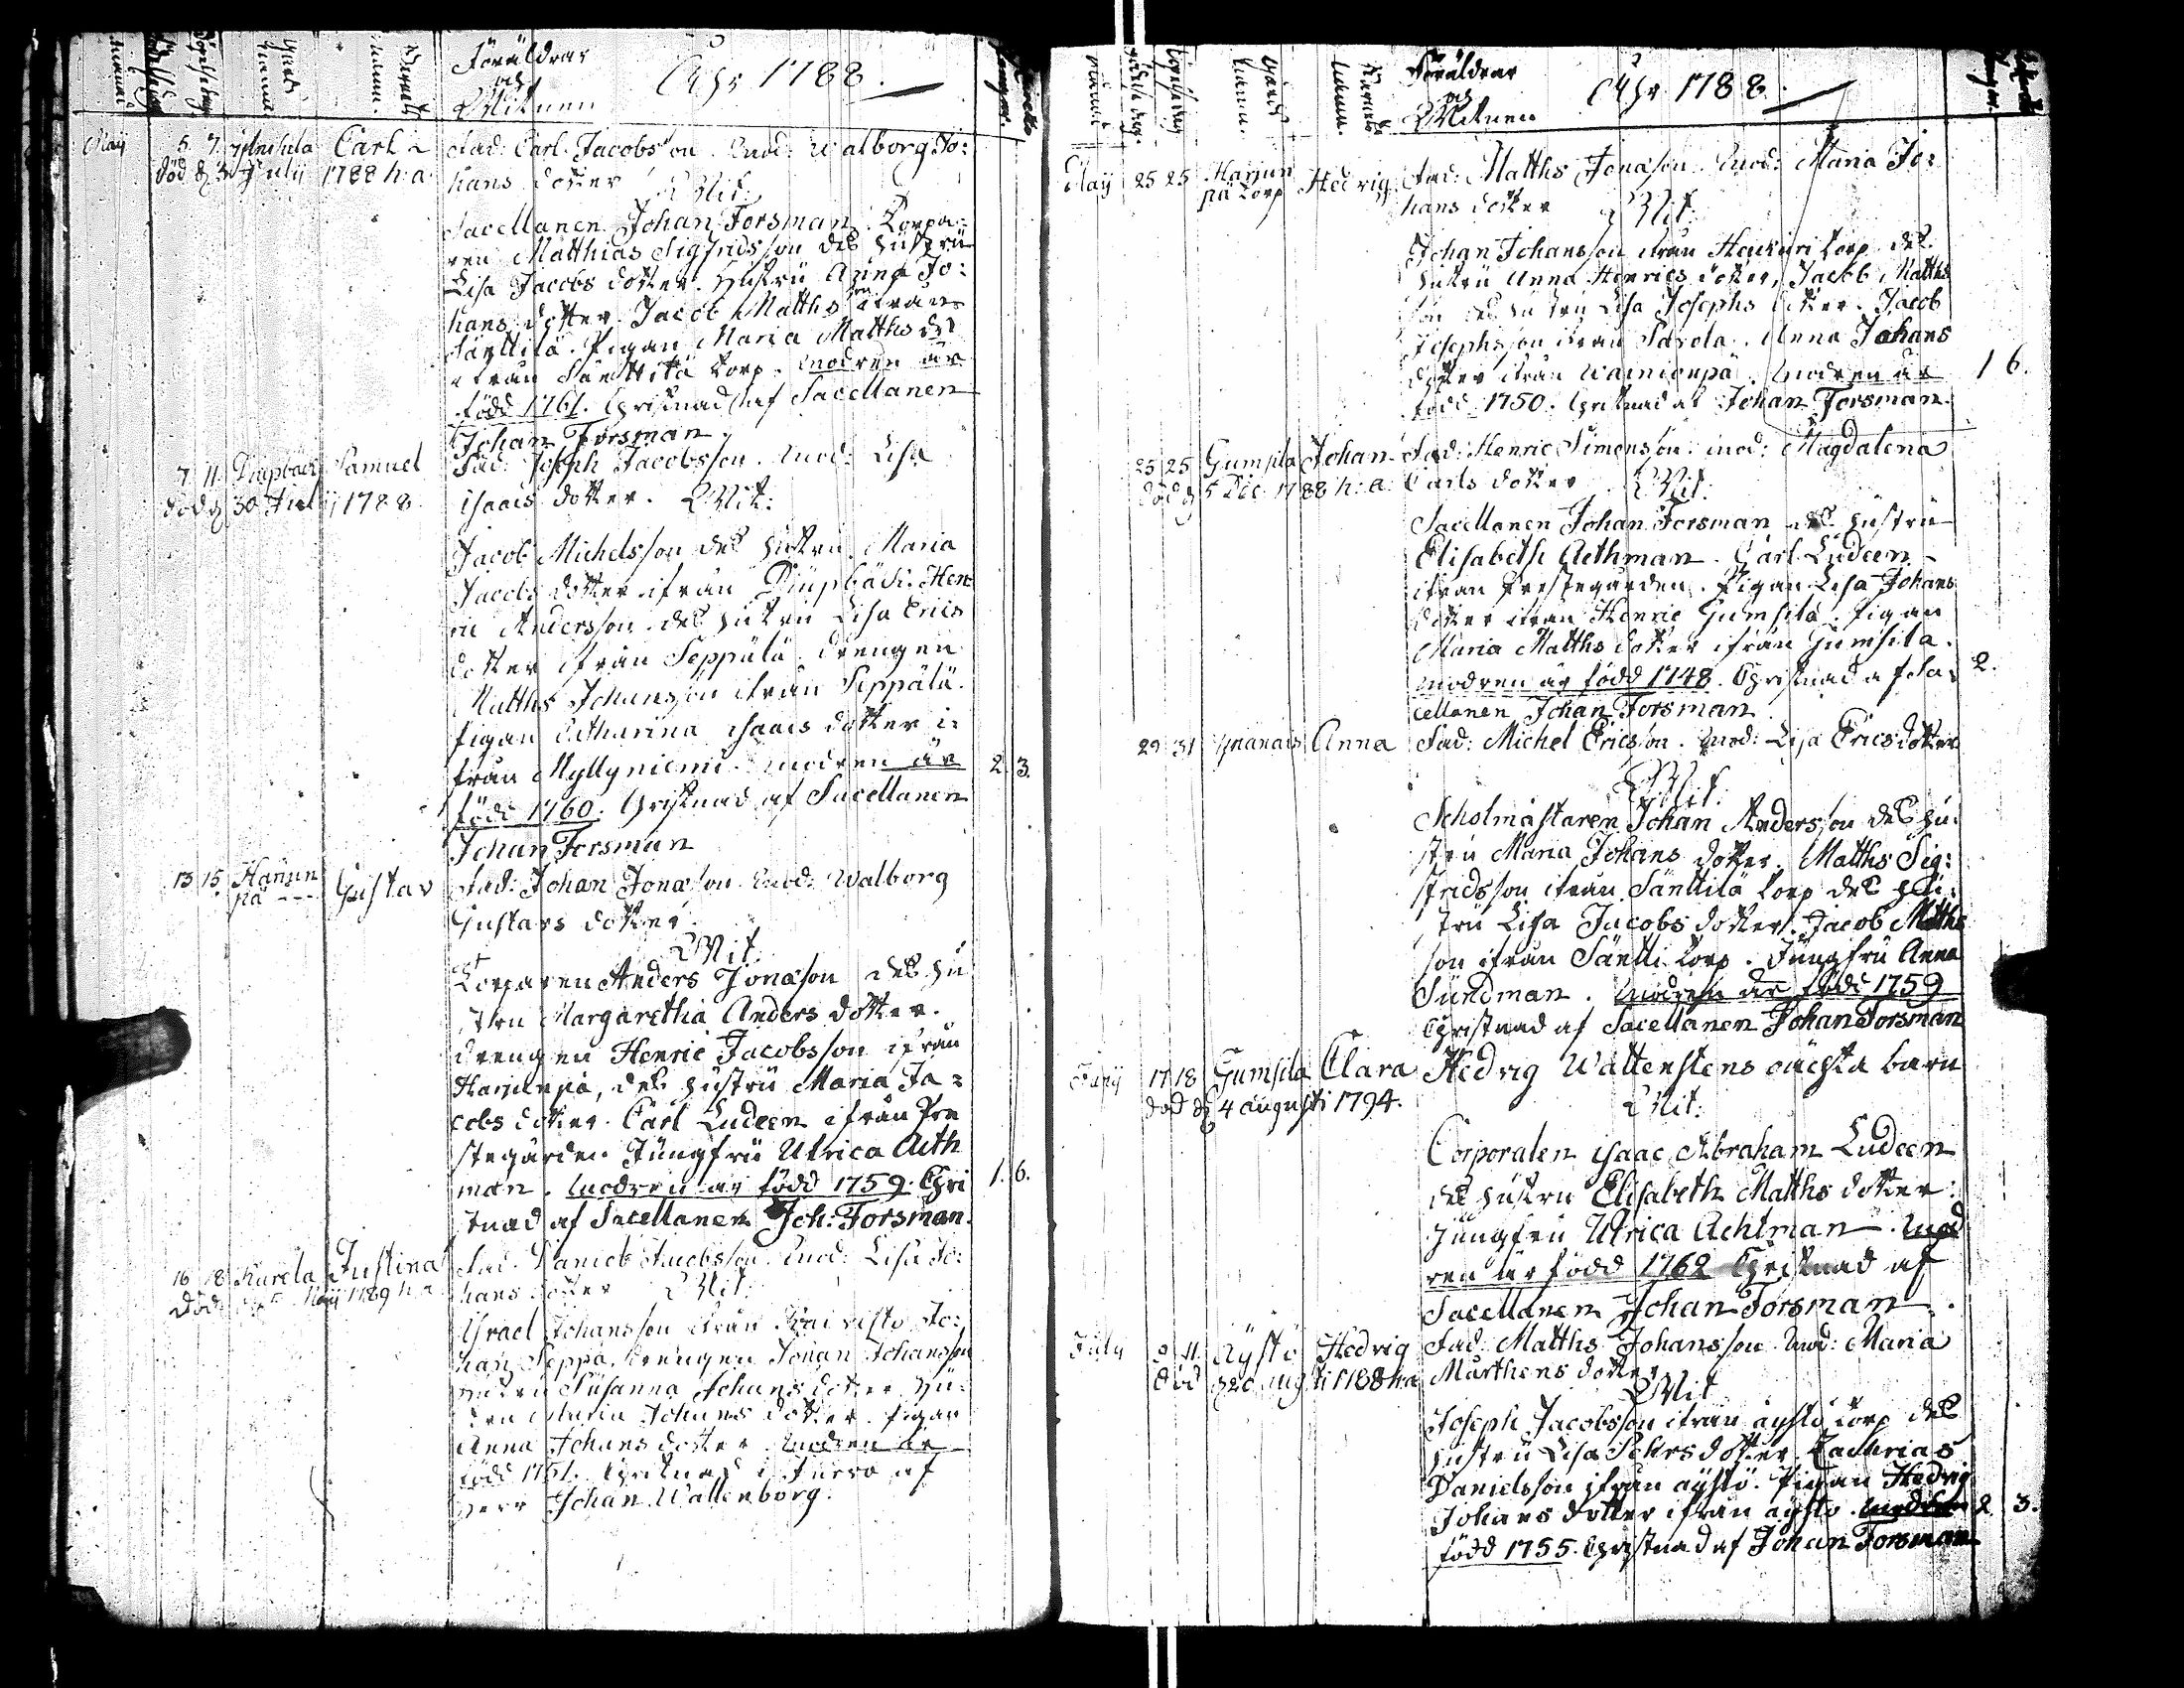 Föräldrar
och
Witnen
Åhr 1788.
May 5. 7. Carl Fad: Carl Jacobsson. Mod: Walborg Jo:
död d. July 1788 h: a: hans dotter Wit:
Sacellanen Johan Forsman. Torpa:
ren Matthias Sigfridsson des hustru
Lisa Jacobs dotter. Hustru Anna Jo:
hans dotter Jacob Matths son ifrån
Sänttilä. Pigan Maria Matths dr
ifrån Sänttilä torp. Modren är
född 1761. Christnad af Sacellanen
Johan Forsman.
7 11 Diupbäck Samuel Fad: Joseph Jacobsson. Mod: Lisa
död d 30 July 1788. isaacs dotter. Wit:
Jacob Michelsson des hustru Maria
Jacobs dotter ifrån Diupbäck. Hen
ric Andersson des hustru Lisa Erics
dotter ifrån Seppälä. drengen
Matths Johansson ifrån Seppälä.
pigan Catharina isaacs dotter i:
från Myllyniemi. modren är 2. 3.
född 1760. Christnad af Sacellanen
Johan Forsman
13 15 Harjun
pä --- Gustav Fad: Johan Jonasson. Mod: Walborg
Gustavs dotter
Wit:
Torparen Anders Jonasson des hu
stru Margaretha Anders dotter.
drengen Henric Jacobsson ifrån
Harjunpä, des hustru Maria Ja:
cobs dotter. Carl Ludeen ifrån Pre
stegården Jungfru Ulrica Aeth
man. modren är född 1759. Chri 1. 6.
stnad af Sacellanen Joh: Forsman.
16 18 Karela Justina Fad: Daniel Jacobsson. Mod: Lisa Jo:
död May 1789 h. a. hans dotter Wit:
Israel Johansson ifrån Koivisto Jo:
han Seppä, drengen Johan Johansson
hustru Susanna Johans dotter Hu:
stru Maria Johans dotter. pigan
Anna Johans dotter. modren är
född 1751. Christnad i af
Herr Johan Wallenborg.
Föräldrar
och
Witnen
Åhr 1788.
May 25 25 Harjun
pä torp Hedvig Fad: Matths Jonasson. Mod: Maria Jo:
hans dotter Wit:
Johan Johansson ifrån torp des
hustru Anna Henrics dotter, Jacob Matths
son des hustru Lisa Josephs dotter. Jacob
Josephsson ifrån Savola. Anna Johans
dotter ifrån. modren är 1 6.
född 1750. Christnad af Johan Forsman.
25 25 Gumsila Johan Fad: Henric Simonsson. mod: Magdalena
död d 5 Dec 1788 h: a: Carls dotter Wit:
Sacellanen Johan Forsman des hustru
Elisabeth Aethman. Carl Ludeen
ifrån Prestegården. Pigan Lisa Johans
dotter ifrån Henric Gumsila. Pigan
Maria Matths dotter ifrån Gumsila.
modren är född 1748. Christnad af Sa: 2.
cellanen Johan Forsman
29 31 Anna Fad: Michel Ericsson. Mod: Lisa Ericsdotter
Wit:
Scholmästaren Johan Andersson des hu:
stru Maria Johans dotter. Matths Sig:
fridsson ifrån Sänttilä torp des hu:
stru Lisa Jacobs dotter. Jacob Matths
son ifrån Säntti torp. Jungfru Anna
Sundman. modren är född 1759
Christnad af Sacellanen Johan Forsman
Juny 17 18 Gumsila Clara Hedvig Wattenstens oächta barn
död d 4 augusti 1794. Wit:
Corporalen isaac Abraham Ludeen
des hustru Elisabeth Matths dotter.
jungfru Ulrica Aehtman. Mod
ren är född 1762 Christnad af
Sacellanen Johan Forsman.
July 9 11. Äystö Hedvig Fad: Matths Johansson. Mod: Maria
död aug ti 1788 h:a Marthens dotter
Wit
Joseph Jacobsson ifrån äystö torp des
hustru Lisa dotter Zachrias
Danielsson ifrån äystö. Pigan Hedvig
Johans dotter ifrån äystö. modren 2. 3.
född 1755. Christnad af Johan Forsman